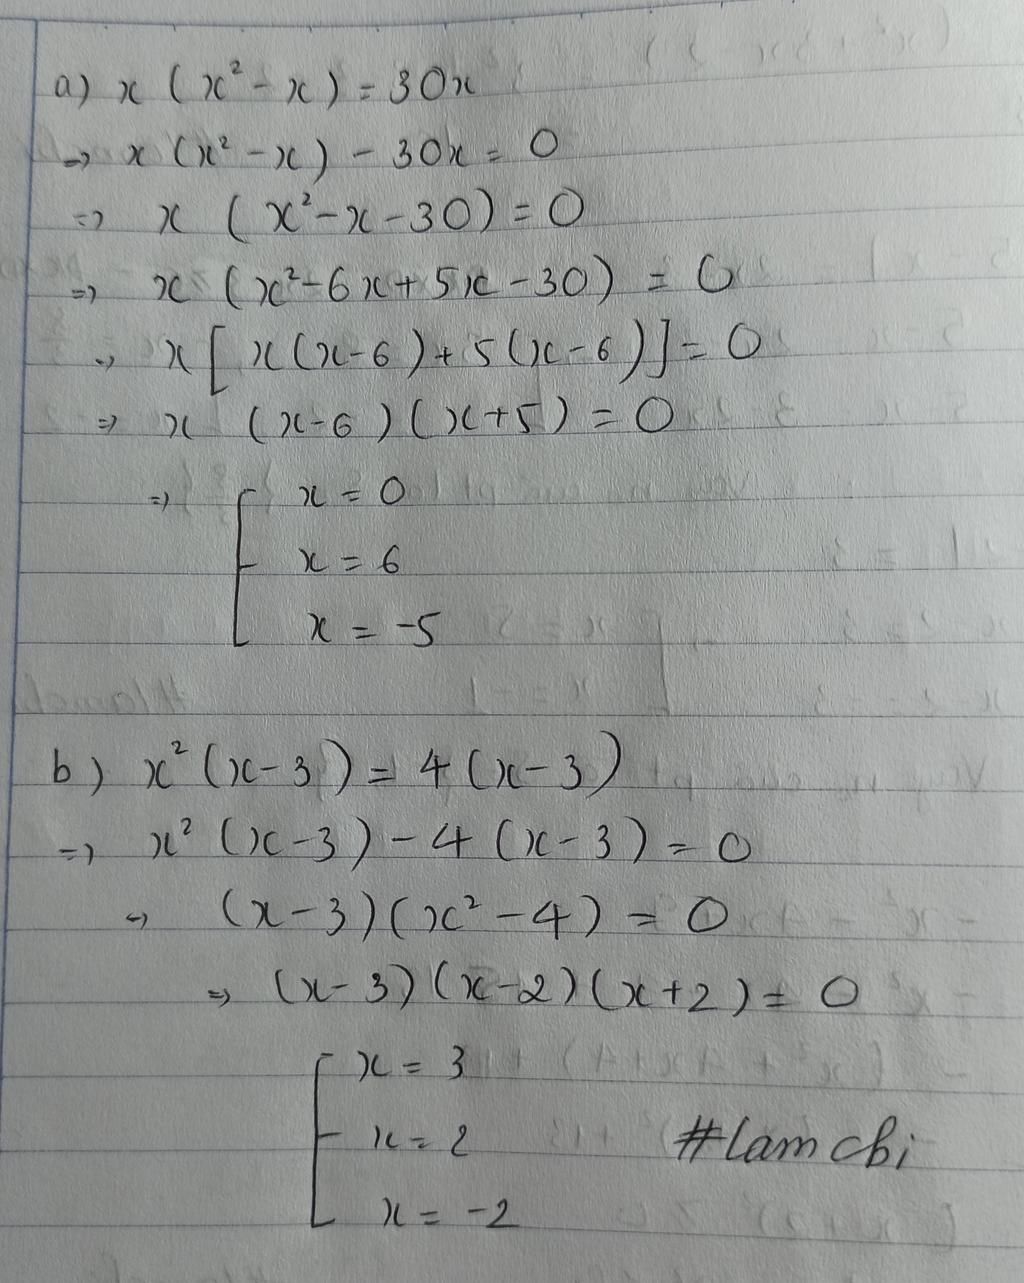 a) x (x² - x) = 30x
=> x (x² - x) - 30x = 0
=> x (x² - x - 30) = 0
=> x (x² - 6x + 5x - 30) = 0
=> x [x(x-6) + 5(x-6)] = 0
=> x (x-6)(x+5) = 0
=> [ x = 0
x = 6
x = -5
b) x² (x-3) = 4 (x-3)
=> x² (x-3) - 4 (x-3) = 0
=> (x-3)(x² - 4) = 0
=> (x-3)(x-2)(x+2) = 0
[ x = 3
x = 2
#lamchi
x = -2